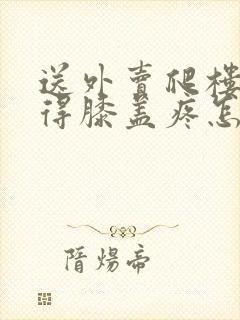 送外賣爬樓
得膝蓋疼怎
隋煬帝